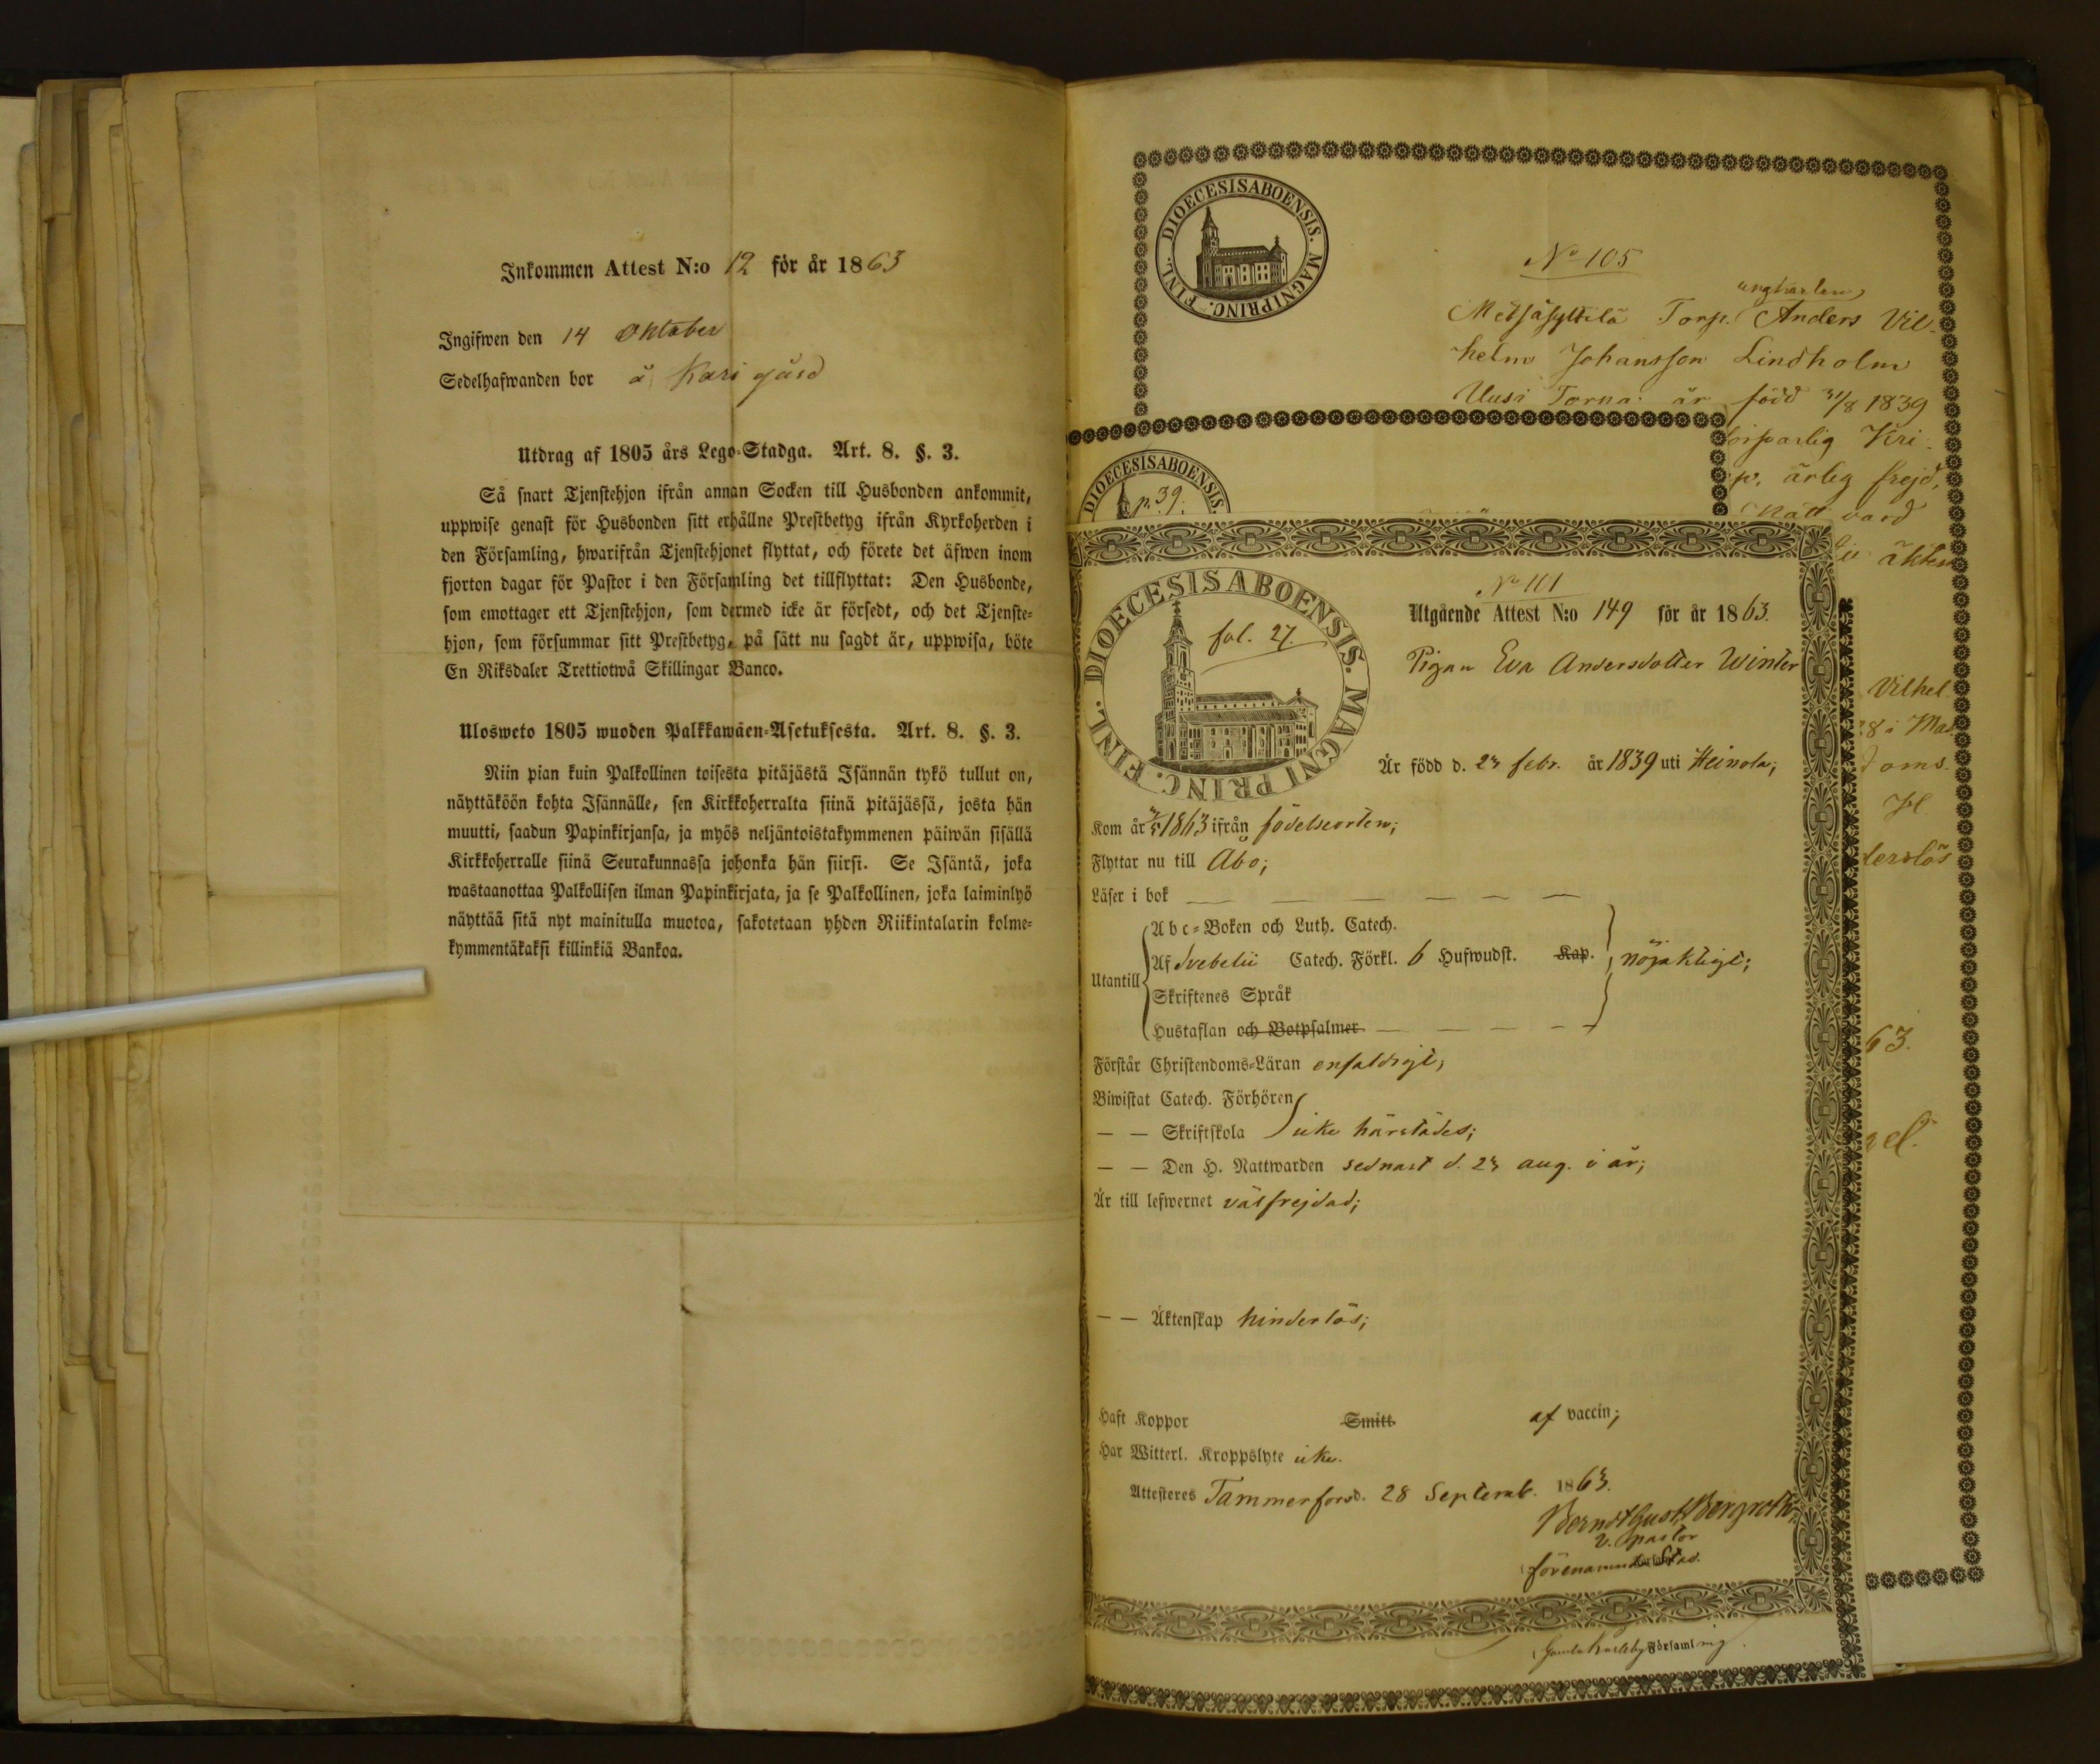 Inkommen Attest N:o 12 för år 1863
Ingifwen den 14 Oktober
Sedelhafwanden bor å Kari gård
Utdrag af 1805 års Lego-Stadga. Art. 8. §. 3.
Så snart Tjenstehjon ifrån annan Socken till Husbonden ankommit,
uppwise genast för Husbonden sitt erhållne Prestbetyg ifrån Kyrkoherden i
den Församling, hwarifrån Tjenstehjonet flyttat, och förete det äfwen inom
fjorton dagar för Pastor i den Församling det tillflyttat: Den Husbonde,
som emottager ett Tjenstehjon, som dermed icke är försedt, och det Tjenste-
hjon, som försummar sitt Prestbetyg, på sätt nu sagdt är, uppwisa, böte
En Riksdaler Trettiotwå Skillingar Banco.
Ulosweto 1805 wuoden Palkkawäen-Asetuksesta. Art. 8. §. 3.
Niin pian kuin Palkollinen toisesta pitäjästä Isännän tykö tullut on,
näyttäköön kohta Isännälle, sen Kirkkoherralta siinä pitäjässä, josta hän
muutti, saadun Papinkirjansa, ja myös neljäntoistakymmenen päiwän sisällä
Kirkkoherralle siinä Seurakunnassa johonka hän siirsi. Se Isäntä, joka
wastaanottaa Palkollisen ilman Papinkirjata, ja se Palkollinen, joka laiminlyö
näyttää sitä nyt mainitulla muotoa, sakotetaan yhden Riikintalarin kolme-
kymmentäkaksi killinkiä Bankoa.
DIOECESIS ABOENSIS. MAGNI PRINC. FINL.
No 105
ungkarlen
Metsäkyltilä Torp. Anders Vil-
helm Johansson Lindholm
Uusi Torna är född 31/8 1839
Kri-
p. ärlig frejd,
Nattvard
äkten
DIOECESIS ABOENSIS.
p. 39.
Vilhel
8 i Mas
doms
derslös
63.
DIOECESIS ABOENSIS. MAGNI PRINC. FINL.
fol. 27.
No 101
Utgående Attest N:o 149 för år 1863.
Pigan Eva Andersdotter Winter
Är född d. 23 febr. år 1839 uti Heinola;
Kom år 1863 ifrån födelseorten;
Flyttar nu till Åbo;
Läser i bok
Abc-Boken och Luth. Catech.
Utantill Af Svebelii Catech. Förkl. 6 Hufwudst. Kap. nöjaktigt;
Skriftenes Språk
Hustaflan och Botpsalmer
Förstår Christendoms-Läran enfaldigt;
Biwistat Catech. Förhören
— — Skriftskola icke härstädes;
— — Den H. Nattwarden sednast d. 23 aug. i år;
Är till lefwernet välfrejdad;
— — Äktenskap hinderlös;
Haft Koppor Smitt af vaccin;
Har Witterl. Kroppslyte icke.
Attesteras Tammerfors d. 28 Septemb. 1863.
Berndt Gust. Bergroth
v. pastor
Gamla Karleby Församling.